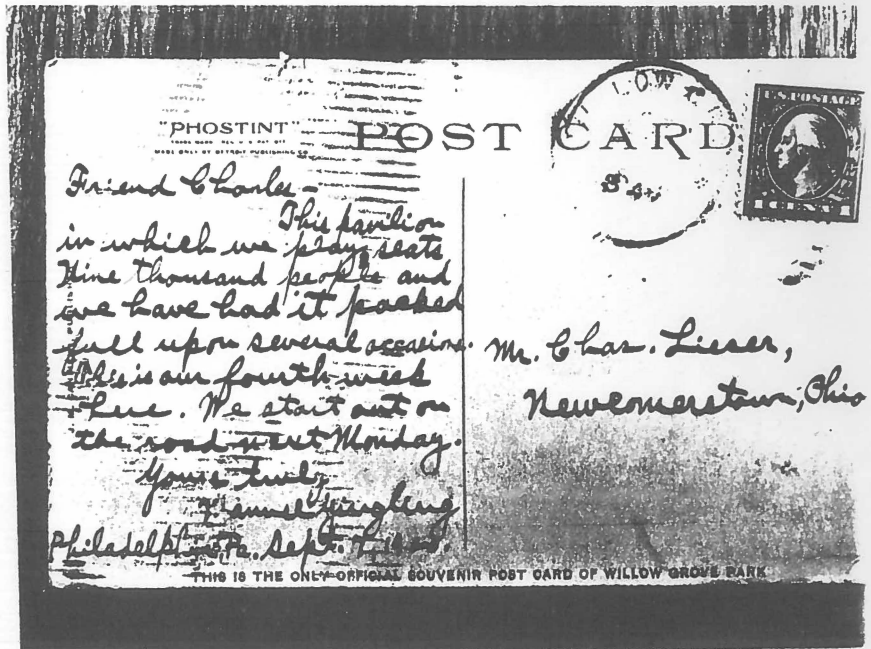 "PHOSTINT"
MADE ONLY BY DETROIT PUBLISHING CO.
POST CARD
LOW
U.S. POSTAGE
1 CENT 1
Friend Charles –
This pavilion
in which we play, seats
Nine thousand people and
we have had it packed
full upon several occasions.
This is our fourth week
here. We start out on
the road next Monday.
Yours truly,
Yingling
Philadelphia Pa. Sept. 
Mr. Chas. Lieser,
Newcomerstown, Ohio
THIS IS THE ONLY OFFICIAL SOUVENIR POST CARD OF WILLOW GROVE PARK